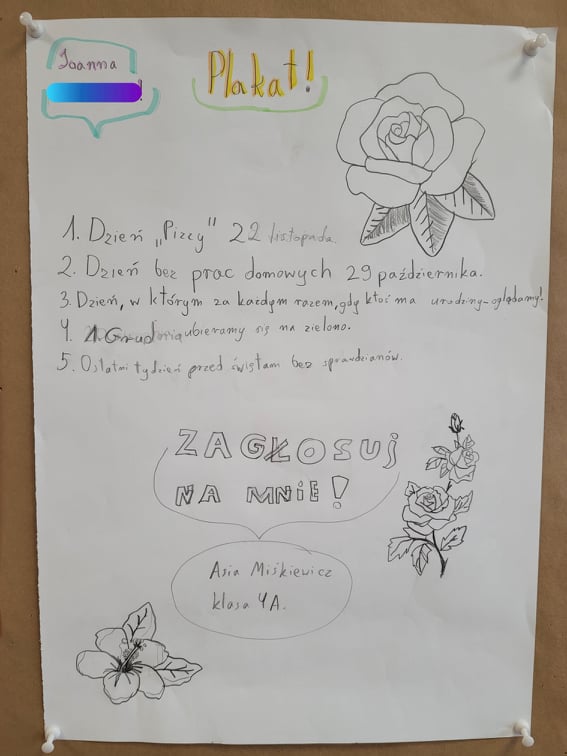 Joanna
Plakat!
1. Dzień „Pizcy" 22 listopada.
2. Dzień bez prac domowych 29 października.
3. Dzień, w którym za każdym razem, gdy ktoś ma urodziny-oglądamy!
4. 1. Grudnia ubieramy się na zielono.
5. Ostatni tydzień przed świętam bez sprawdzianów.
ZAGŁOSUJ
NA MNiE!
Asia Miśkiewicz
klasa 4A.